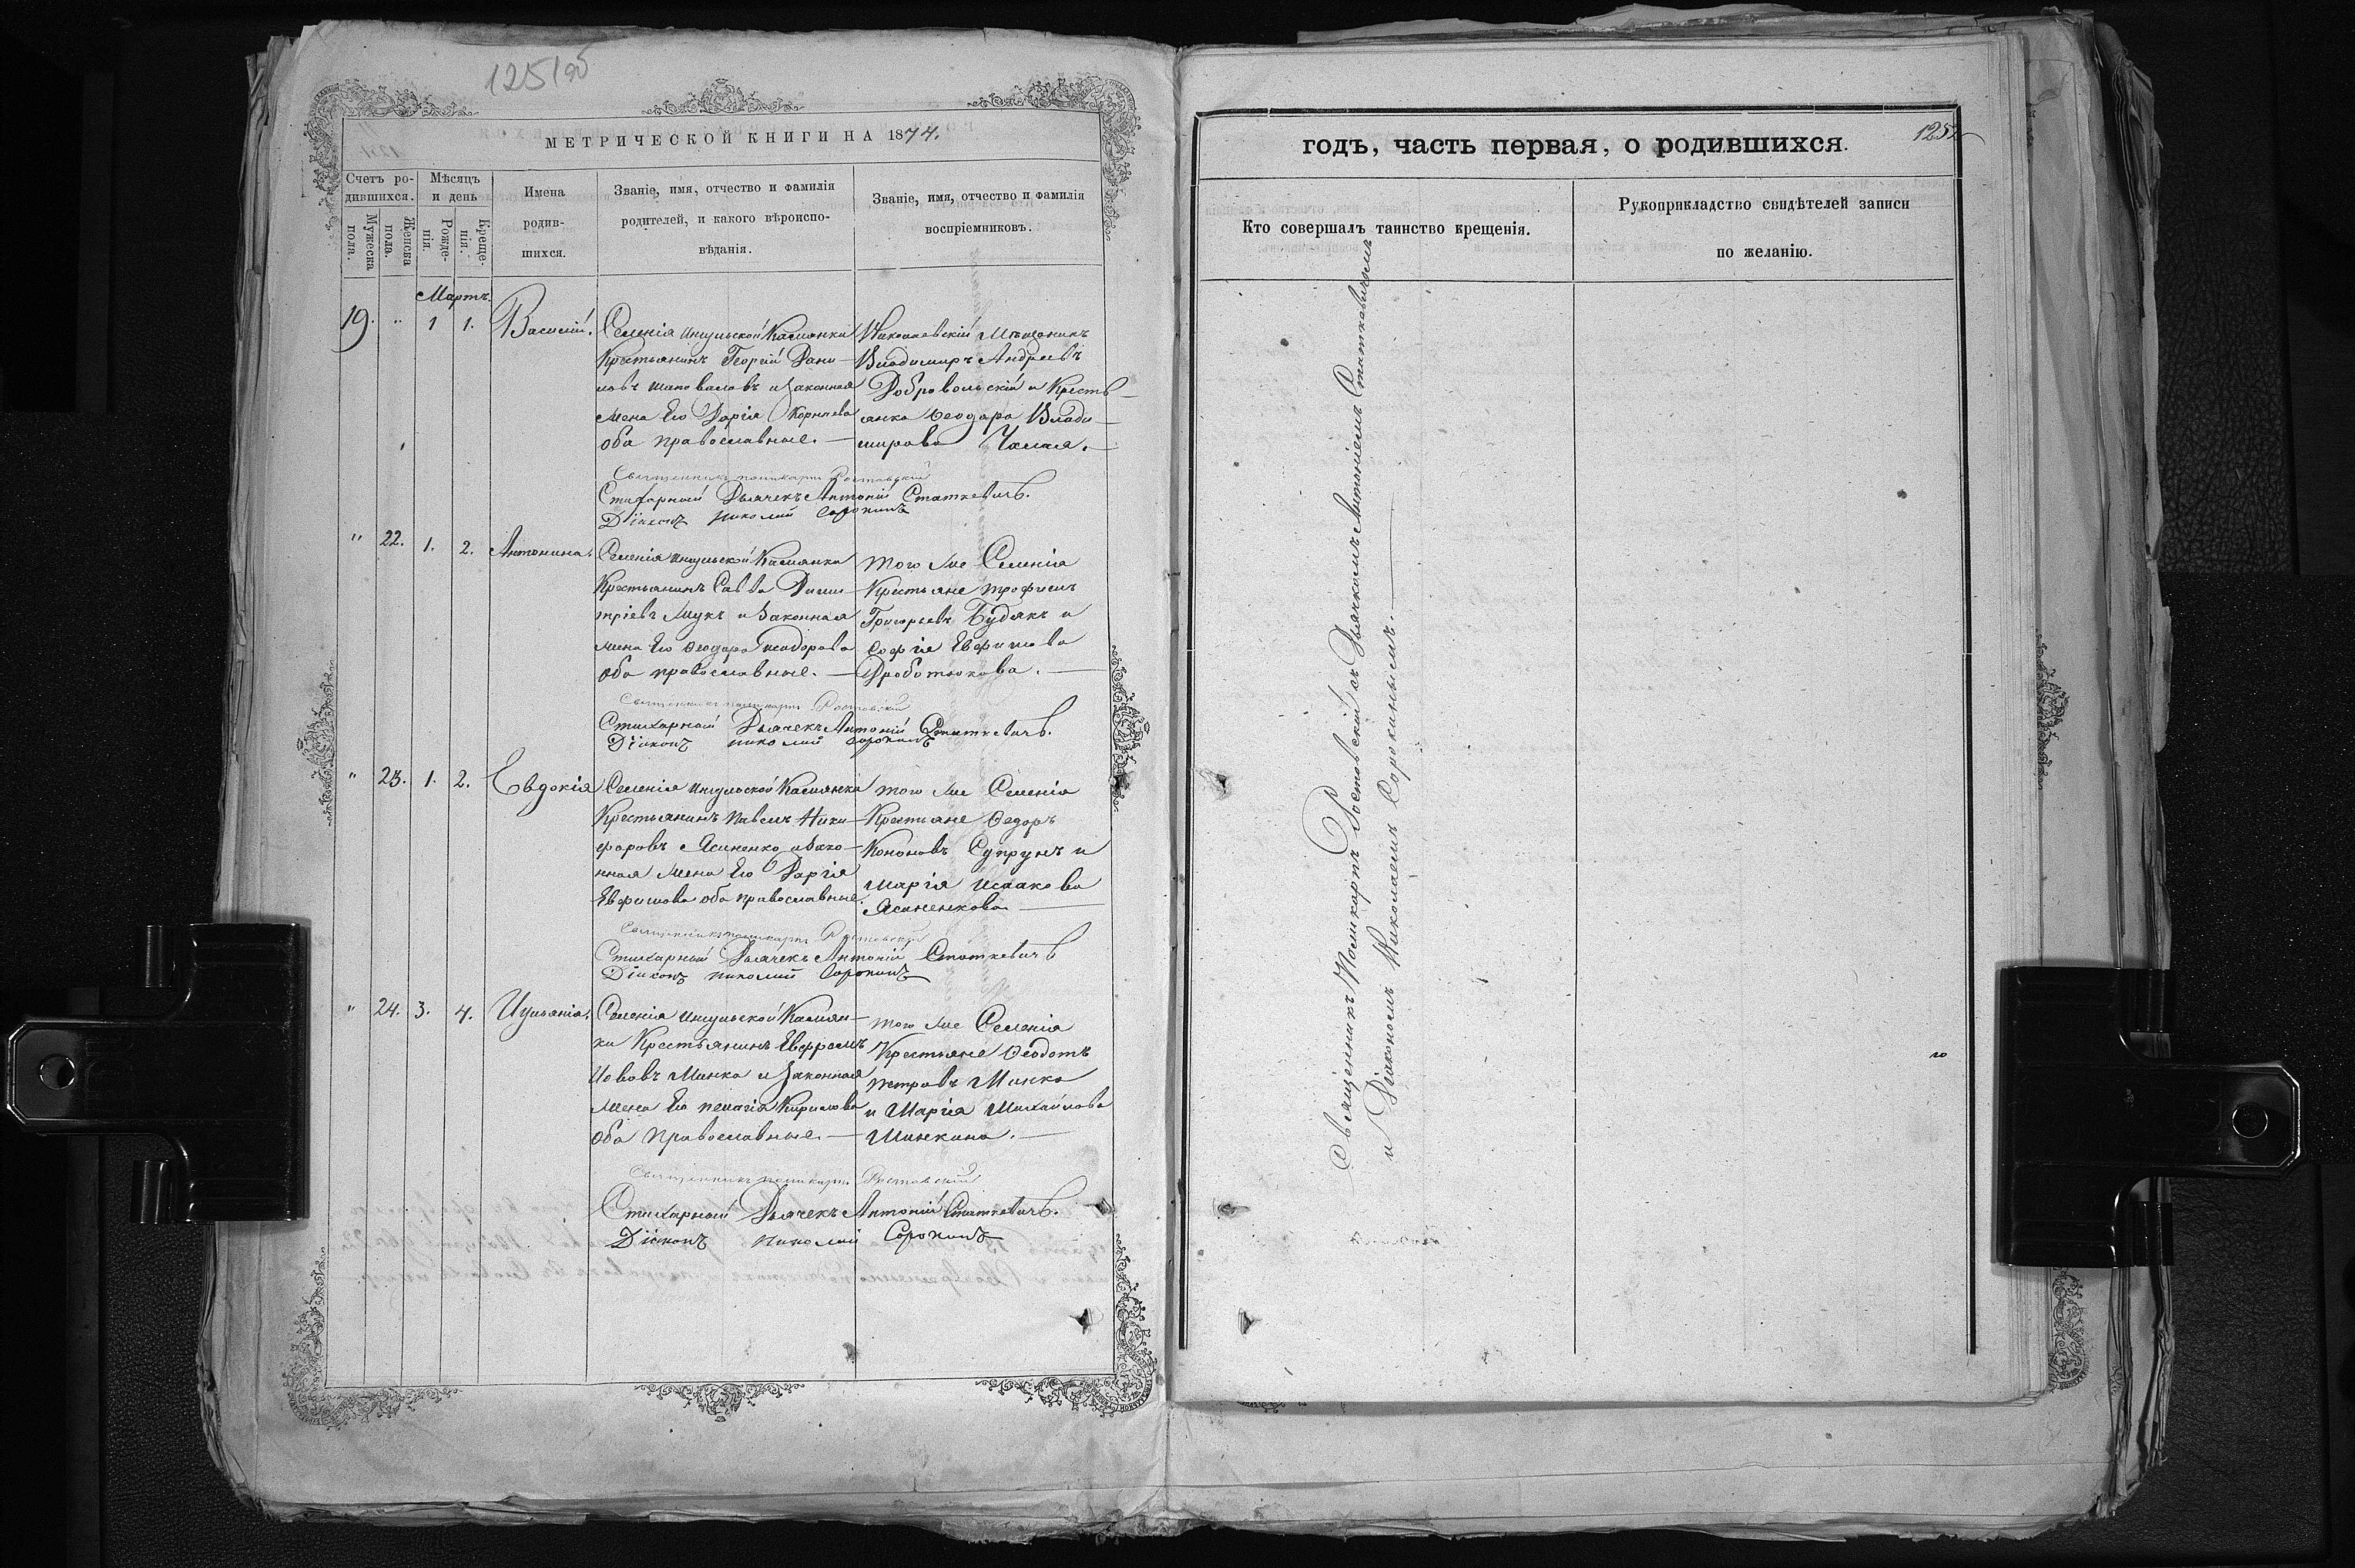 125 об
МЕТРИЧЕСКОЙ КНИГИ НА 1874.
Счетъ ро-
дившихся.
Мѣсяцъ
и день
Мужеска
пола.
Женска
пола.
Рожде-
нія.
Креще-
нія.
Имена
родив-
шихся.
Званіе, имя, отчество и фамилія
родителей, и какого вѣроиспо-
вѣданія.
Званіе, имя, отчество и фамилія
воспріемниковъ.
Мартъ.
19. " 1 1. Василій.
Селенія Ингульской Касмянки
Крестьянинъ Георгій Дани-
ловъ Шаповаловъ и Законная
жена Его Дарія Корнѣева
оба православные. —
Николаевскій Мѣщанинъ
Владимиръ Андреевъ
Добровольскій и Кресть-
янка Ѳеодора Влади-
мирова Чалая. —
Священникъ Поликарпъ Ростовскій
Стихарный Дьячекъ Антоній Статкевичъ.
Діаконъ Николай Сорокинъ
" 22. 1. 2. Антонина.
Селенія Ингульской Касмянки
Крестьянинъ Савва Дими-
тріевъ Жукъ и Законная
жена Его Ѳеодора Ѳеодорова
оба православные. —
того же Селенія
Крестьяне Трофимъ
Григорьевъ Будякъ и
Софія Евфимова
Дроботюкова. —
Священникъ Поликарпъ Ростовскій
Стихарный Дьячекъ Антоній Статкевичъ.
Діаконъ Николай Сорокинъ
" 23. 1. 2. Евдокія
Селенія Ингульской Касмянки
Крестьянинъ Павелъ Ники-
форовъ Ясиненко и Зако-
нная жена Его Дарія
Евфимова оба православные.
того же Селенія
Крестьяне Ѳедоръ
Кононовъ Супрунъ и
Марія Исаакова
Ясиненкова —
Священникъ Поликарпъ Ростовскій
Стихарный Дьячекъ Антоній Статкевичъ
Діаконъ Николай Сорокинъ
" 24. 3. 4. Иуліанія.
Селенія Ингульской Касмян-
ки Крестьянинъ Евфремъ
Іововъ Минка и Законная
жена Его Пелагія Кирилова
оба православные. —
того же Селенія
Крестьяне Ѳеодотъ
Петровъ Минка
и Марія Михайлова
Минкина. —
Священникъ Поликарпъ Ростовскій
Стихарный Дьячекъ Антоній Статкевичъ.
Діаконъ Николай Сорокинъ
годъ, часть первая, о родившихся.
125
Кто совершалъ таинство крещенія.
Рукоприкладство свидѣтелей записи
по желанію.
Священникъ Поликарпъ Ростовскій съ Дьячкомъ Антоніемъ Статкевичемъ
и Діакономъ Николаемъ Сорокинымъ. —